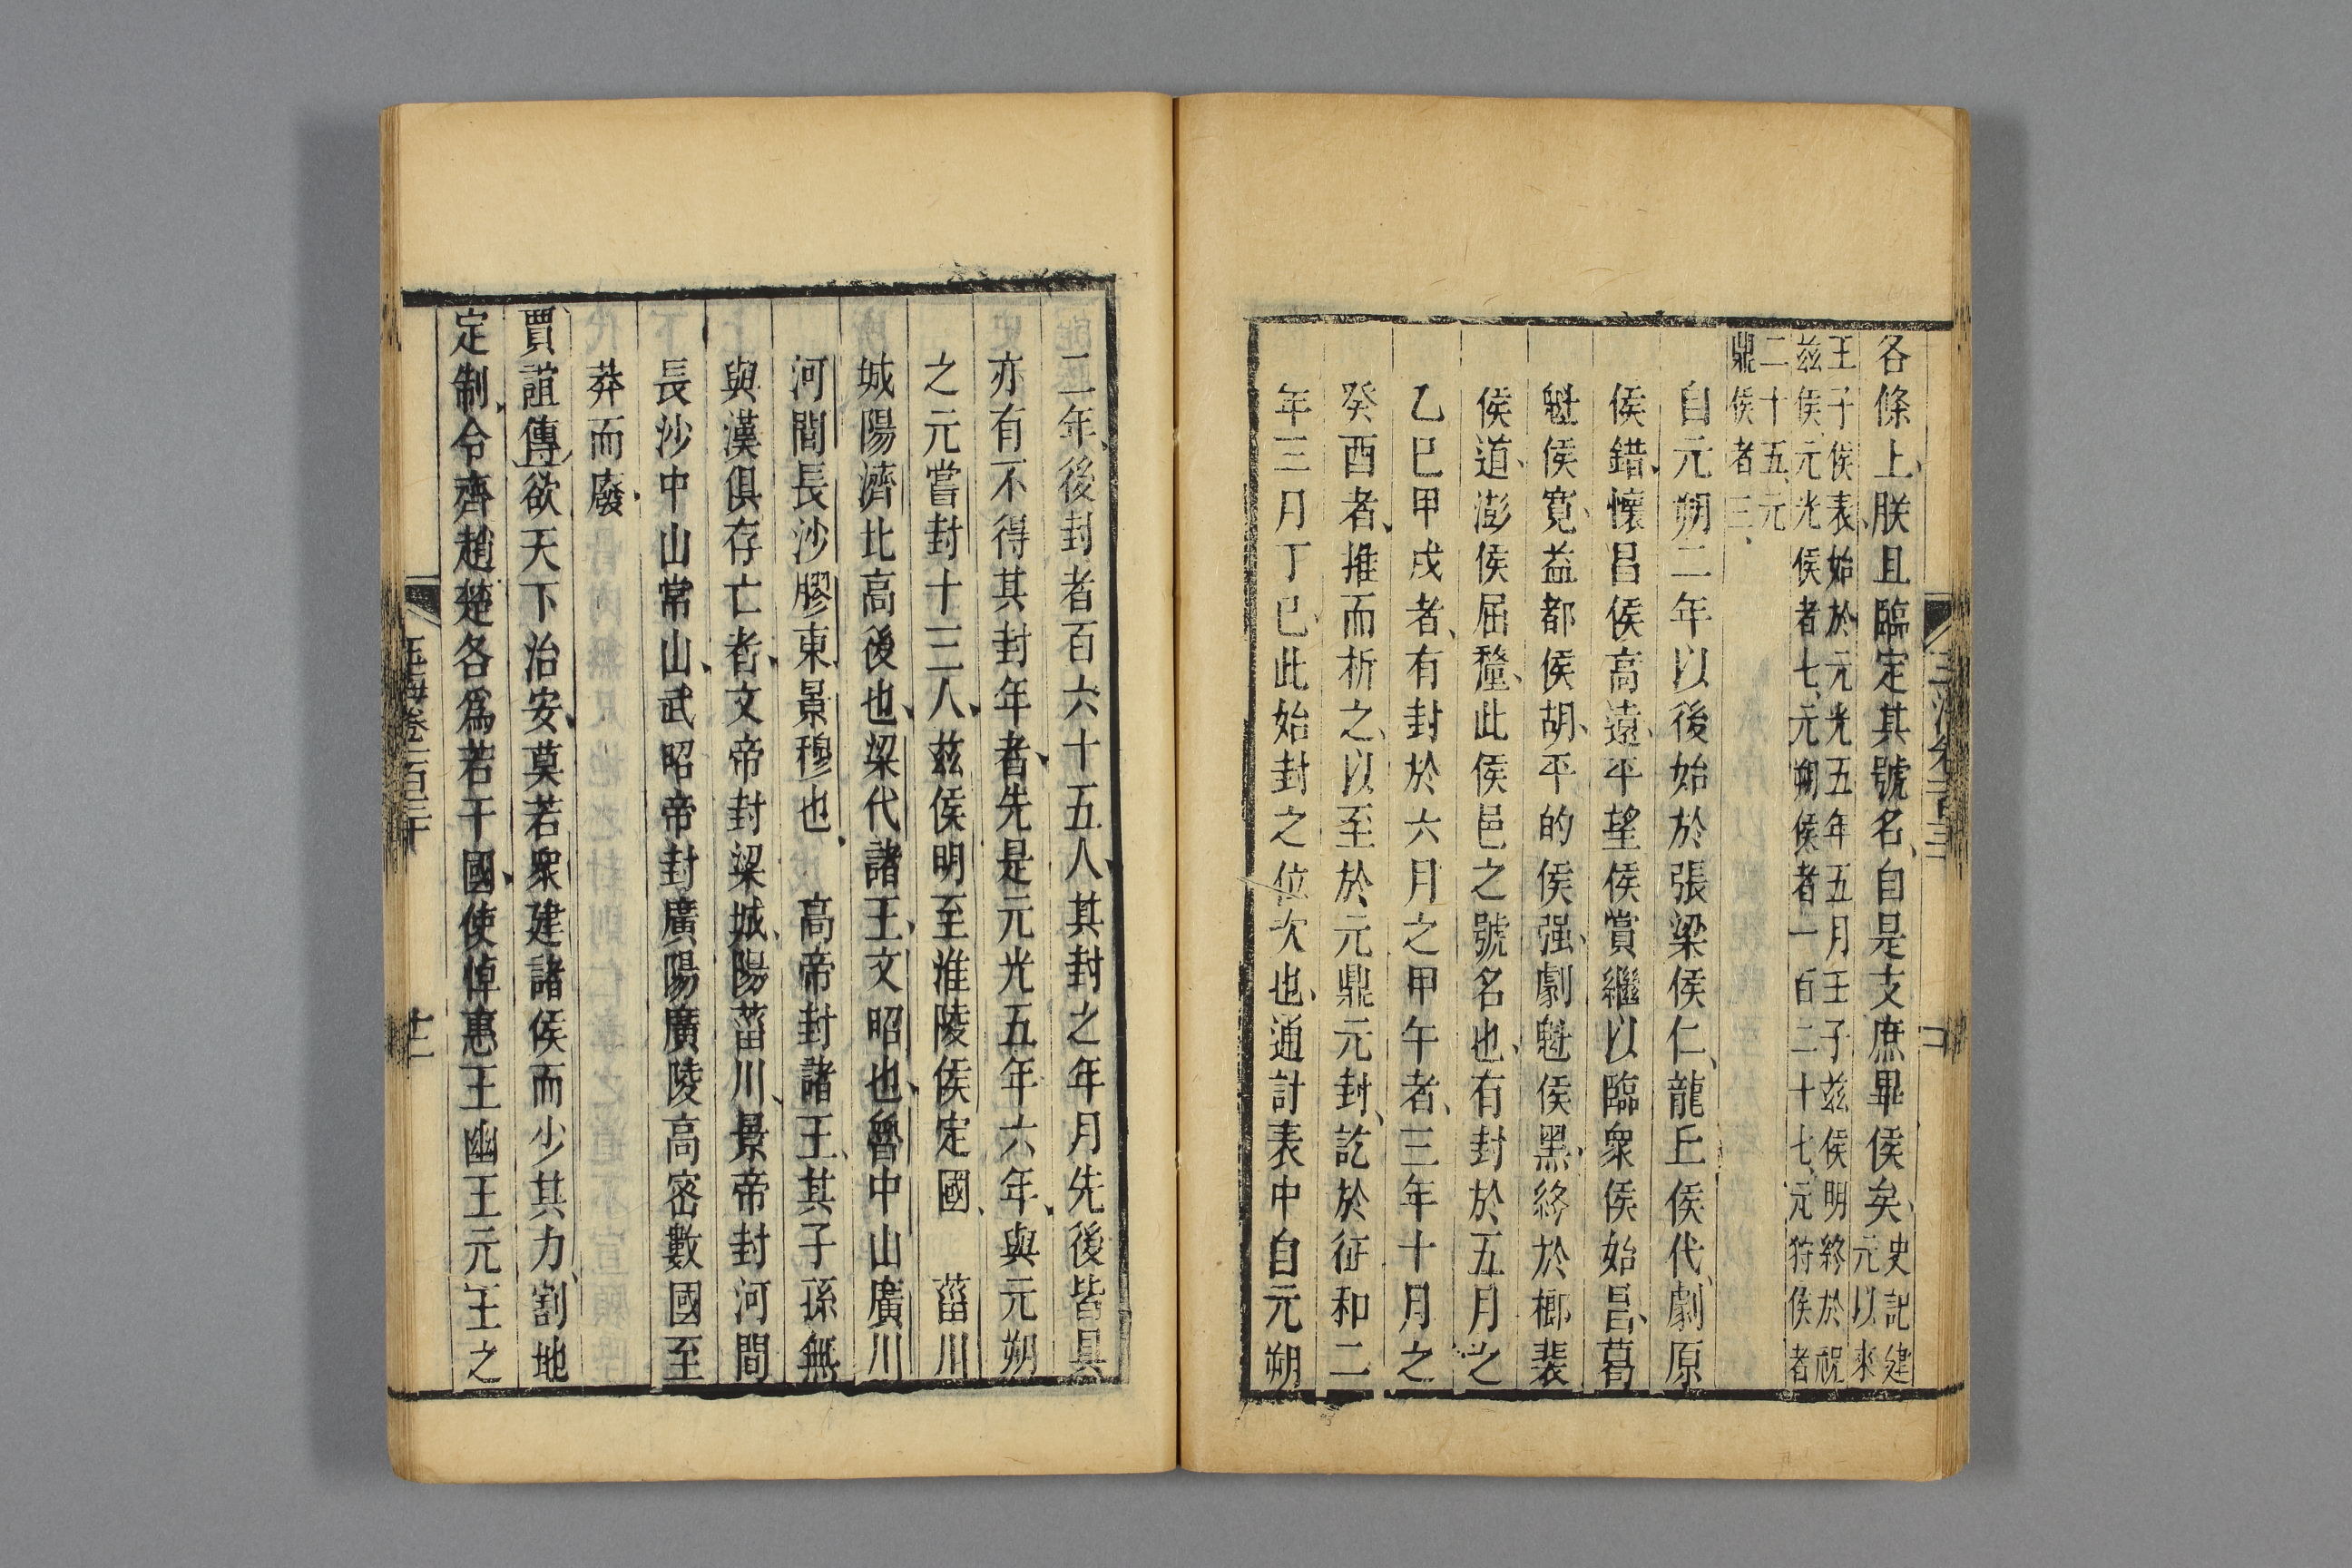 各條上朕且臨定其號名自是支庶畢侯矣史記建
元以來
王子侯表始於元光五年五月壬子兹侯明終於祝
兹侯元光侯者七元朔侯者一百二十七元狩侯者
二十五元
鼎侯者三
自元朔二年以後始於張梁侯仁龍丘侯代劇原
侯錯懷昌侯高遠平望侯賞繼以臨衆侯始昌葛
魁侯寛益都侯胡平的侯强劇魁侯黑終於榔裴
侯道澎侯屈釐此侯邑之號名也有封於五月之
乙巳甲戌者有封於六月之甲午者三年十月之
癸酉者推而析之以至於元鼎元封訖於征和二
年三月丁巳此始封之位次也通計表中自元朔
二年後封者百六十五人其封之年月先後皆具
亦有不得其封年者先是元光五年六年與元朔
之元嘗封十三人兹侯明至淮陵侯定國 菑川
城陽濟北高後也梁代諸王文昭也魯中山廣川
河間長沙膠東景穆也 高帝封諸王其子孫無
與漢俱存亡者文帝封梁城陽菑川景帝封河間
長沙中山常山武昭帝封廣陽廣陵高密數國至
莽而廢
賈誼傳欲天下治安莫若衆建諸侯而少其力割地
定制令齊趙楚各爲若干國使悼惠王幽王元王之
玉海卷一百三十
十一